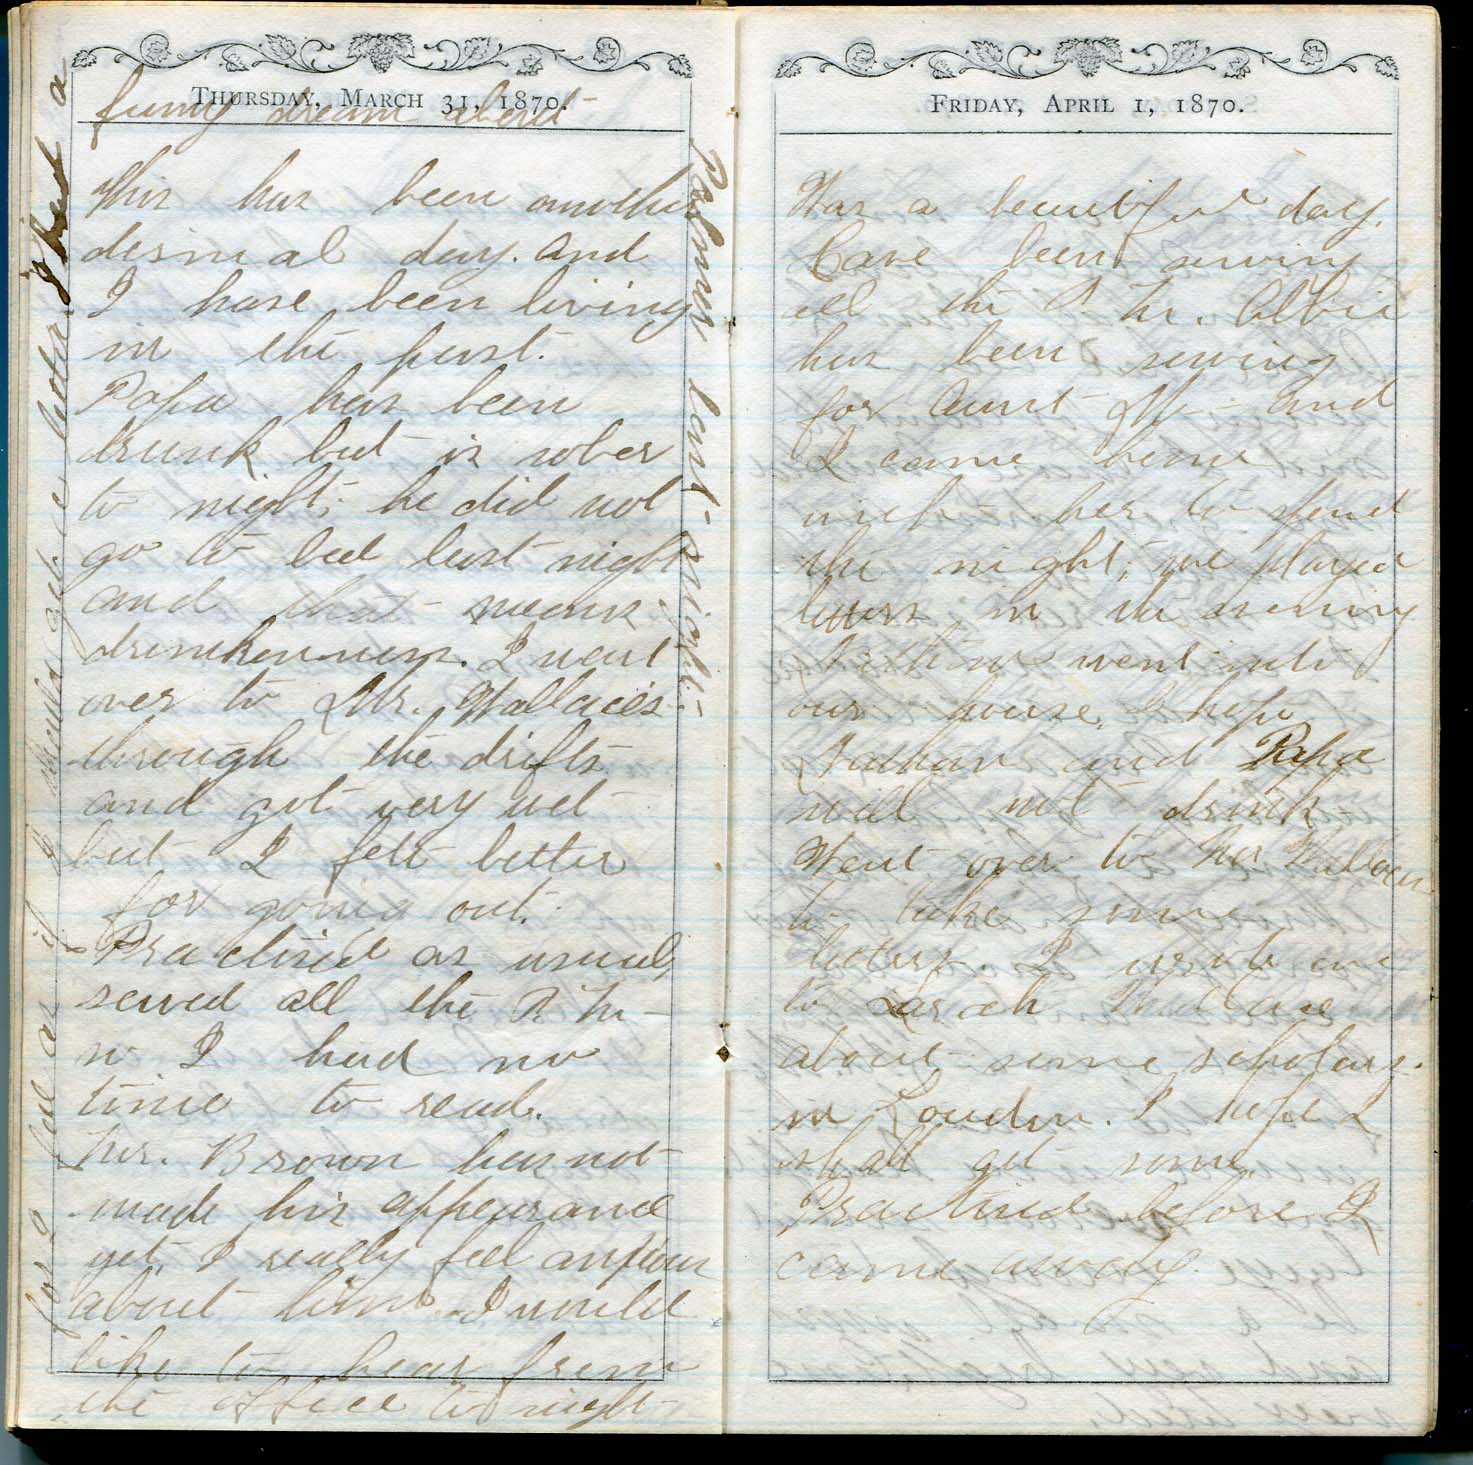 THURSDAY, MARCH 31, 1870.
This has been another
dismal day. And
I have been living
in the past.
Papa has been
drunk but is sober
to night; he did not
go to bed last night
and that means
drunkenness. I went
over to Mr. Wallace's
through the drifts
and got very wet
but I felt better
for going out.
Practised as usual,
sewed all the P.M.
so I had no
time to read.
Mr. Brown has not
made his appearance
yet, I really feel anxious
about him. I would
like to hear from
the office to night
for I feel as if I should get a letter. I had a
funny dream about
Palmer last night.
FRIDAY, APRIL 1, 1870.
Was a beautiful day.
Have been sewing
all the P.M. Abbie
has been sewing
for Aunt M- and
I came home
with her to spend
the night; we played
letters in the evening
went into
our house, I hope
Nathan and Papa
will not drink
Went over to Mr Wallaces
to take some
letters. I wrote one
to Sarah Wallace
about some scholars.
in Loudon. I hope I
shall get some.
Practised before I
came away.